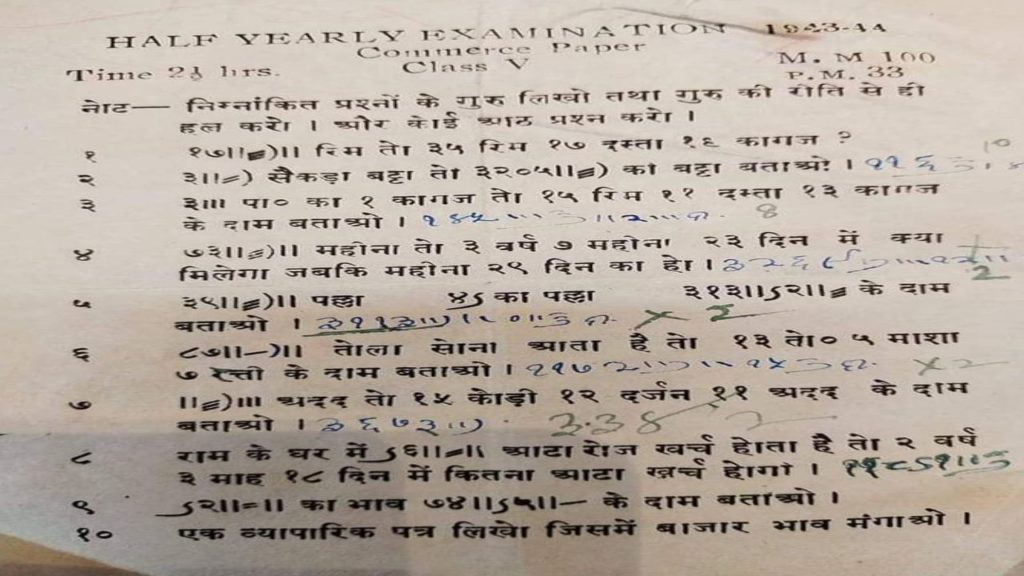 HALF YEARLY EXAMINATION 1943-44
Commerce Paper
Time 2½ hrs. Class V M. M 100
P. M. 33
नोट— निम्नांकित प्रश्नों के गुरु लिखो तथा गुरु की रीति से ही
हल करो । और कोई आठ प्रश्न करो ।
१ १७॥=)॥ रिम तो ३५ रिम १७ दस्ता १६ कागज ?
२ ३॥=) सैकड़ा बट्टा तो ३२०५॥=) का बट्टा बताओ ।
३ ३॥। पा० का १ कागज तो १५ रिम ११ दस्ता १३ कागज
के दाम बताओ ।
४ ७३॥=)॥ महीना तो ३ वर्ष ७ महीना २३ दिन में क्या
मिलेगा जबकि महीना २९ दिन का हो ।
५ ३९॥=)॥ पल्ला ४ऽ का पल्ला ३१३॥ऽ२॥= के दाम
बताओ ।
६ ८७॥-)॥ तोला सोना आता है तो १३ तो० ५ माशा
७ रत्ती के दाम बताओ ।
७ ॥=)॥। अदद तो १५ कोड़ी १२ दर्जन ११ अदद के दाम
बताओ ।
८ राम के घर में ऽ६॥=॥ आटा रोज खर्च होता है तो २ वर्ष
३ माह १८ दिन में कितना आटा खर्च होगा ।
९ ऽ२॥=॥ का भाव ७४॥ऽ५॥- के दाम बताओ ।
१० एक व्यापारिक पत्र लिखो जिसमें बाजार भाव मंगाओ ।